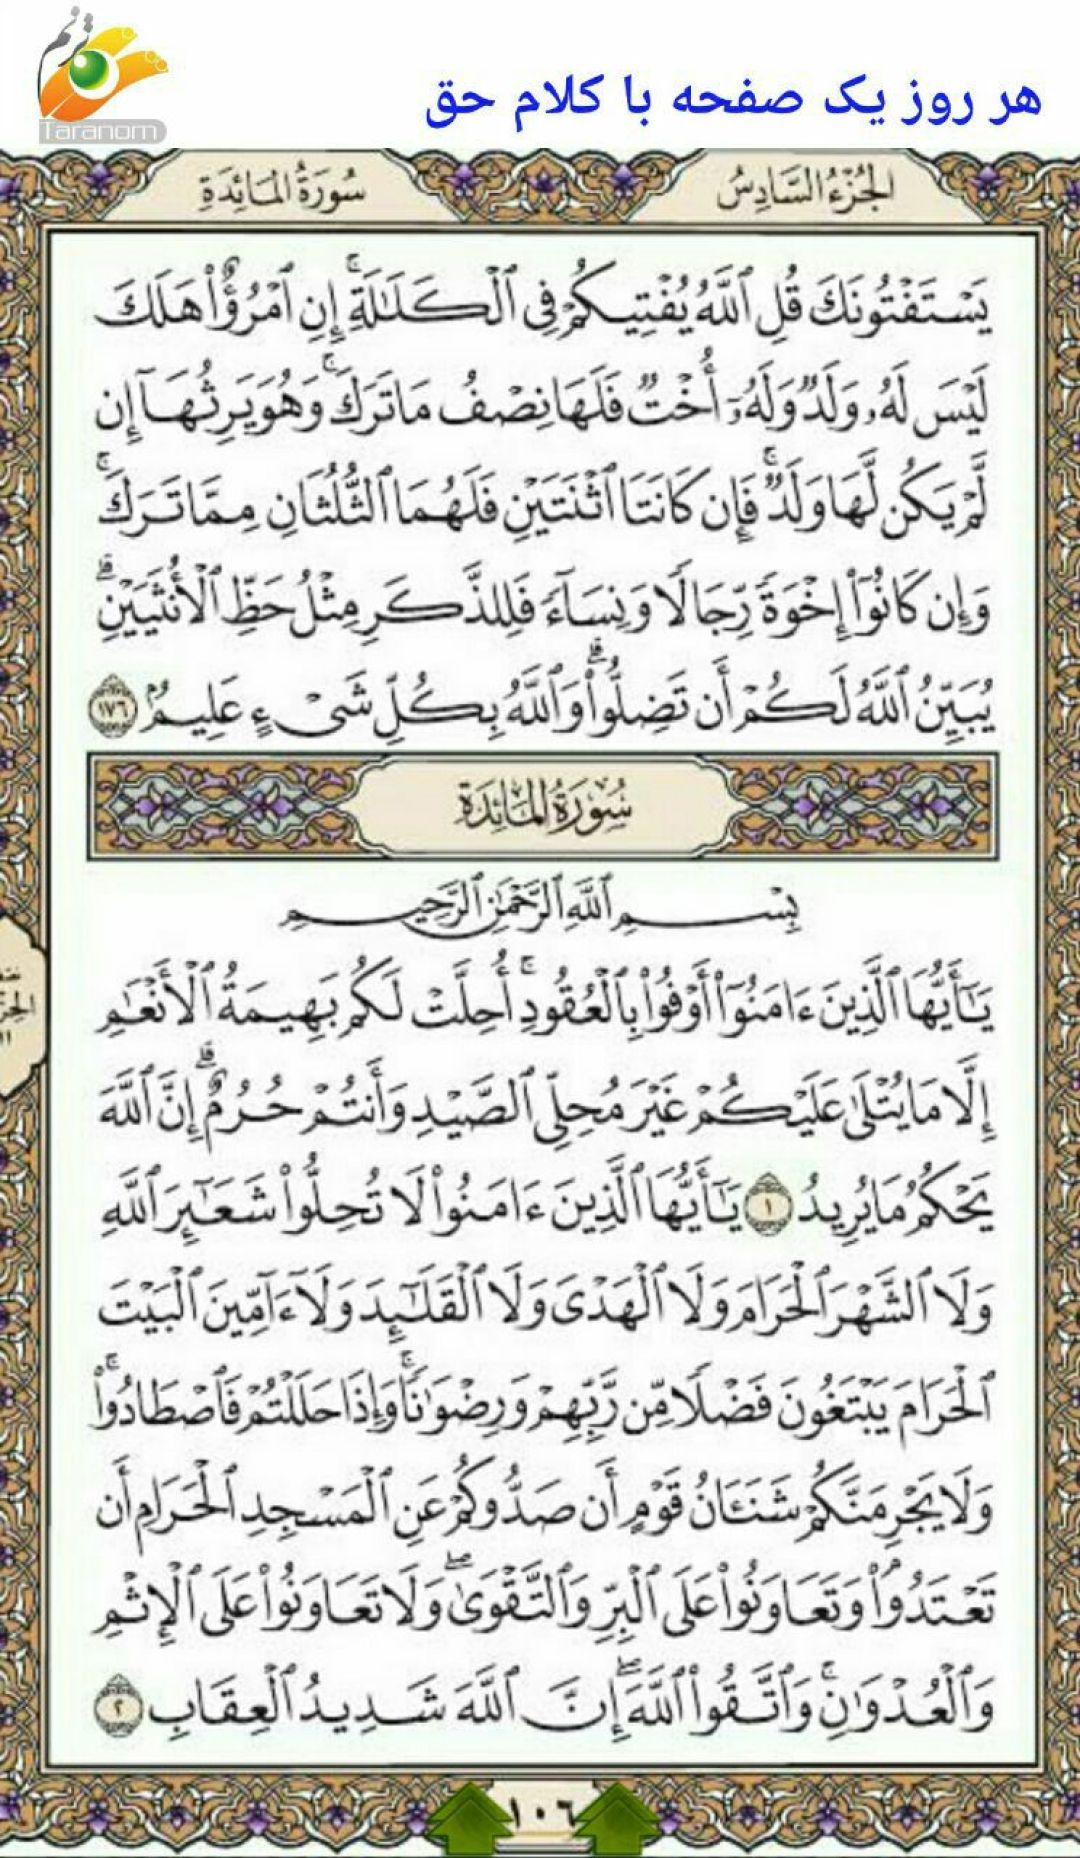 Taranom
هر روز یک صفحه با کلام حق
الجُزْءُ السَّادِسُ
سُورَةُ المَائِدَةِ
يَسْتَفْتُونَكَ قُلِ ٱللَّهُ يُفْتِيكُمْ فِى ٱلْكَلَـٰلَةِ ۚ إِنِ ٱمْرُؤٌا۟ هَلَكَ
لَيْسَ لَهُۥ وَلَدٌ وَلَهُۥٓ أُخْتٌ فَلَهَا نِصْفُ مَا تَرَكَ ۚ وَهُوَ يَرِثُهَآ إِن
لَّمْ يَكُن لَّهَا وَلَدٌ ۚ فَإِن كَانَتَا ٱثْنَتَيْنِ فَلَهُمَا ٱلثُّلُثَانِ مِمَّا تَرَكَ ۚ
وَإِن كَانُوٓا۟ إِخْوَةً رِّجَالًا وَنِسَآءً فَلِلذَّكَرِ مِثْلُ حَظِّ ٱلْأُنثَيَيْنِ ۗ
يُبَيِّنُ ٱللَّهُ لَكُمْ أَن تَضِلُّوا۟ ۗ وَٱللَّهُ بِكُلِّ شَىْءٍ عَلِيمٌۢ ١٧٦
سُورَةُ المَائِدَةِ
بِسْمِ ٱللَّهِ ٱلرَّحْمَـٰنِ ٱلرَّحِيمِ
يَـٰٓأَيُّهَا ٱلَّذِينَ ءَامَنُوٓا۟ أَوْفُوا۟ بِٱلْعُقُودِ ۚ أُحِلَّتْ لَكُم بَهِيمَةُ ٱلْأَنْعَـٰمِ
إِلَّا مَا يُتْلَىٰ عَلَيْكُمْ غَيْرَ مُحِلِّى ٱلصَّيْدِ وَأَنتُمْ حُرُمٌ ۗ إِنَّ ٱللَّهَ
يَحْكُمُ مَا يُرِيدُ ١ يَـٰٓأَيُّهَا ٱلَّذِينَ ءَامَنُوا۟ لَا تُحِلُّوا۟ شَعَـٰٓئِرَ ٱللَّهِ
وَلَا ٱلشَّهْرَ ٱلْحَرَامَ وَلَا ٱلْهَدْىَ وَلَا ٱلْقَلَـٰٓئِدَ وَلَآ ءَآمِّينَ ٱلْبَيْتَ
ٱلْحَرَامَ يَبْتَغُونَ فَضْلًا مِّن رَّبِّهِمْ وَرِضْوَٰنًا ۚ وَإِذَا حَلَلْتُمْ فَٱصْطَادُوا۟ ۚ
وَلَا يَجْرِمَنَّكُمْ شَنَـَٔانُ قَوْمٍ أَن صَدُّوكُمْ عَنِ ٱلْمَسْجِدِ ٱلْحَرَامِ أَن
تَعْتَدُوا۟ ۘ وَتَعَاوَنُوا۟ عَلَى ٱلْبِرِّ وَٱلتَّقْوَىٰ ۖ وَلَا تَعَاوَنُوا۟ عَلَى ٱلْإِثْمِ
وَٱلْعُدْوَٰنِ ۚ وَٱتَّقُوا۟ ٱللَّهَ ۖ إِنَّ ٱللَّهَ شَدِيدُ ٱلْعِقَابِ ٢
١٠٦